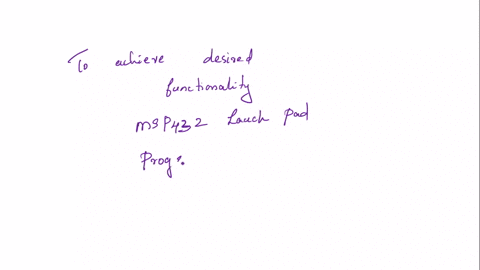 To achieve desired
functionality
MSP432 Lauch pad
Prog